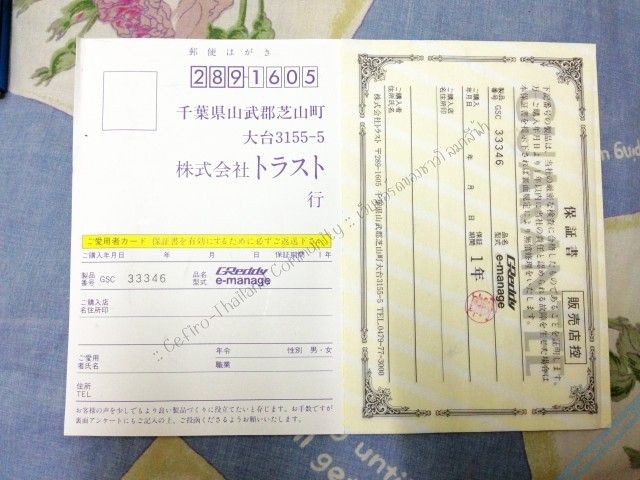 郵便はがき
2891605
千葉県山武郡芝山町
大台3155-5
株式会社トラスト
行
ご愛用者カード 保証書を有効にするために必ずご返送下さい
ご購入年月日 年 月 日 保証期間 1年
製品番号 GSC 33346 品名型式 GReddy e-manage
ご購入店名住所印
ご愛用者氏名 年令 性別 男・女
職業
住所
TEL
お客様の声を少しでもより良い製品づくりに役立てたいと存じます。お手数ですが
裏面アンケートにもご記入の上、ご投函くださるようお願いいたします。
保証書
販売店控
製品番号 GSC 33346
品名型式 GReddy e-manage
ご購入年月日 年 月 日
保証期間 1年
ご購入店名住所印
ご購入者住所氏名
株式会社トラスト 〒289-1605 千葉県山武郡芝山町大台3155-5 TEL.0479-77-3000
:: Cefiro-Thailand Community ::